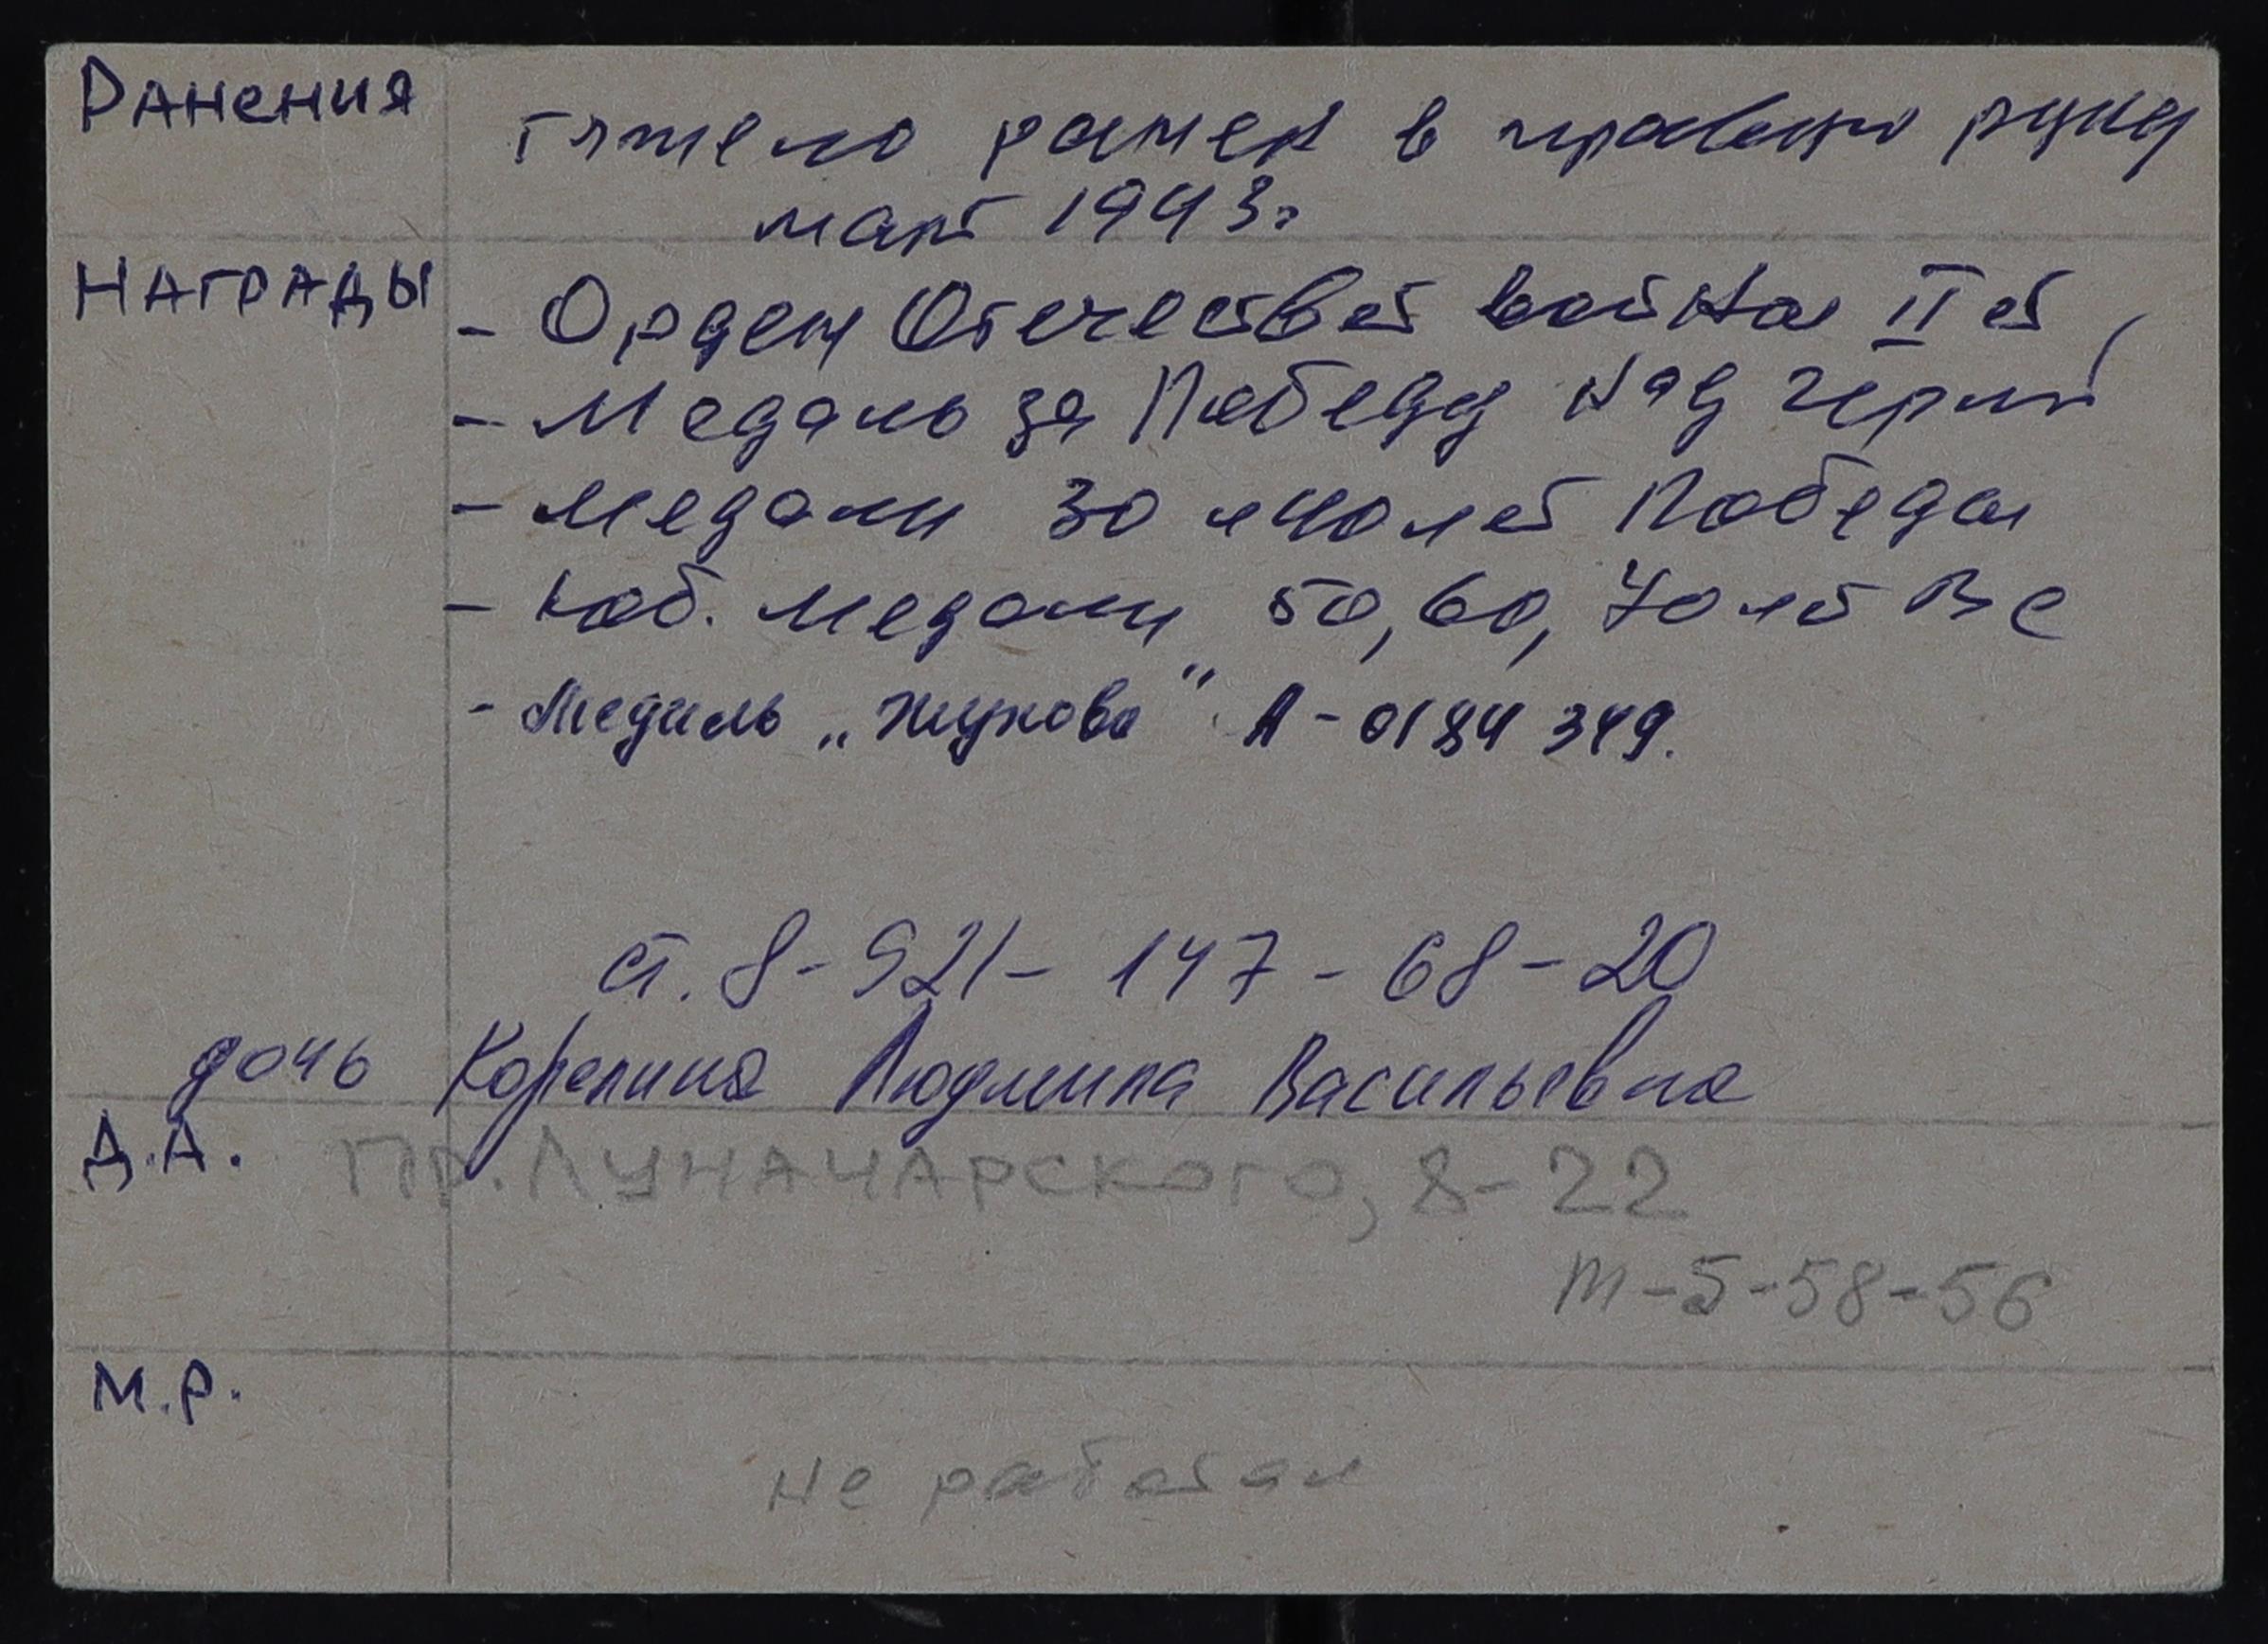 Ранения тяжело ранен в правую руку
март 1943г
Награды - Орден Отечествет войны II ст
- Медаль за Победу над Герм
- Медали 30 и 40 лет Победы
- Юб. медали 50, 60, 70 лет ВС
- Медаль „Жукова" А - 0184 349.
ст. 8-921-147-68-20
дочь Корепина Людмила Васильевна
Д.А. Пр. Луначарского, 8-22
т-5-58-56
М.Р.
не работал